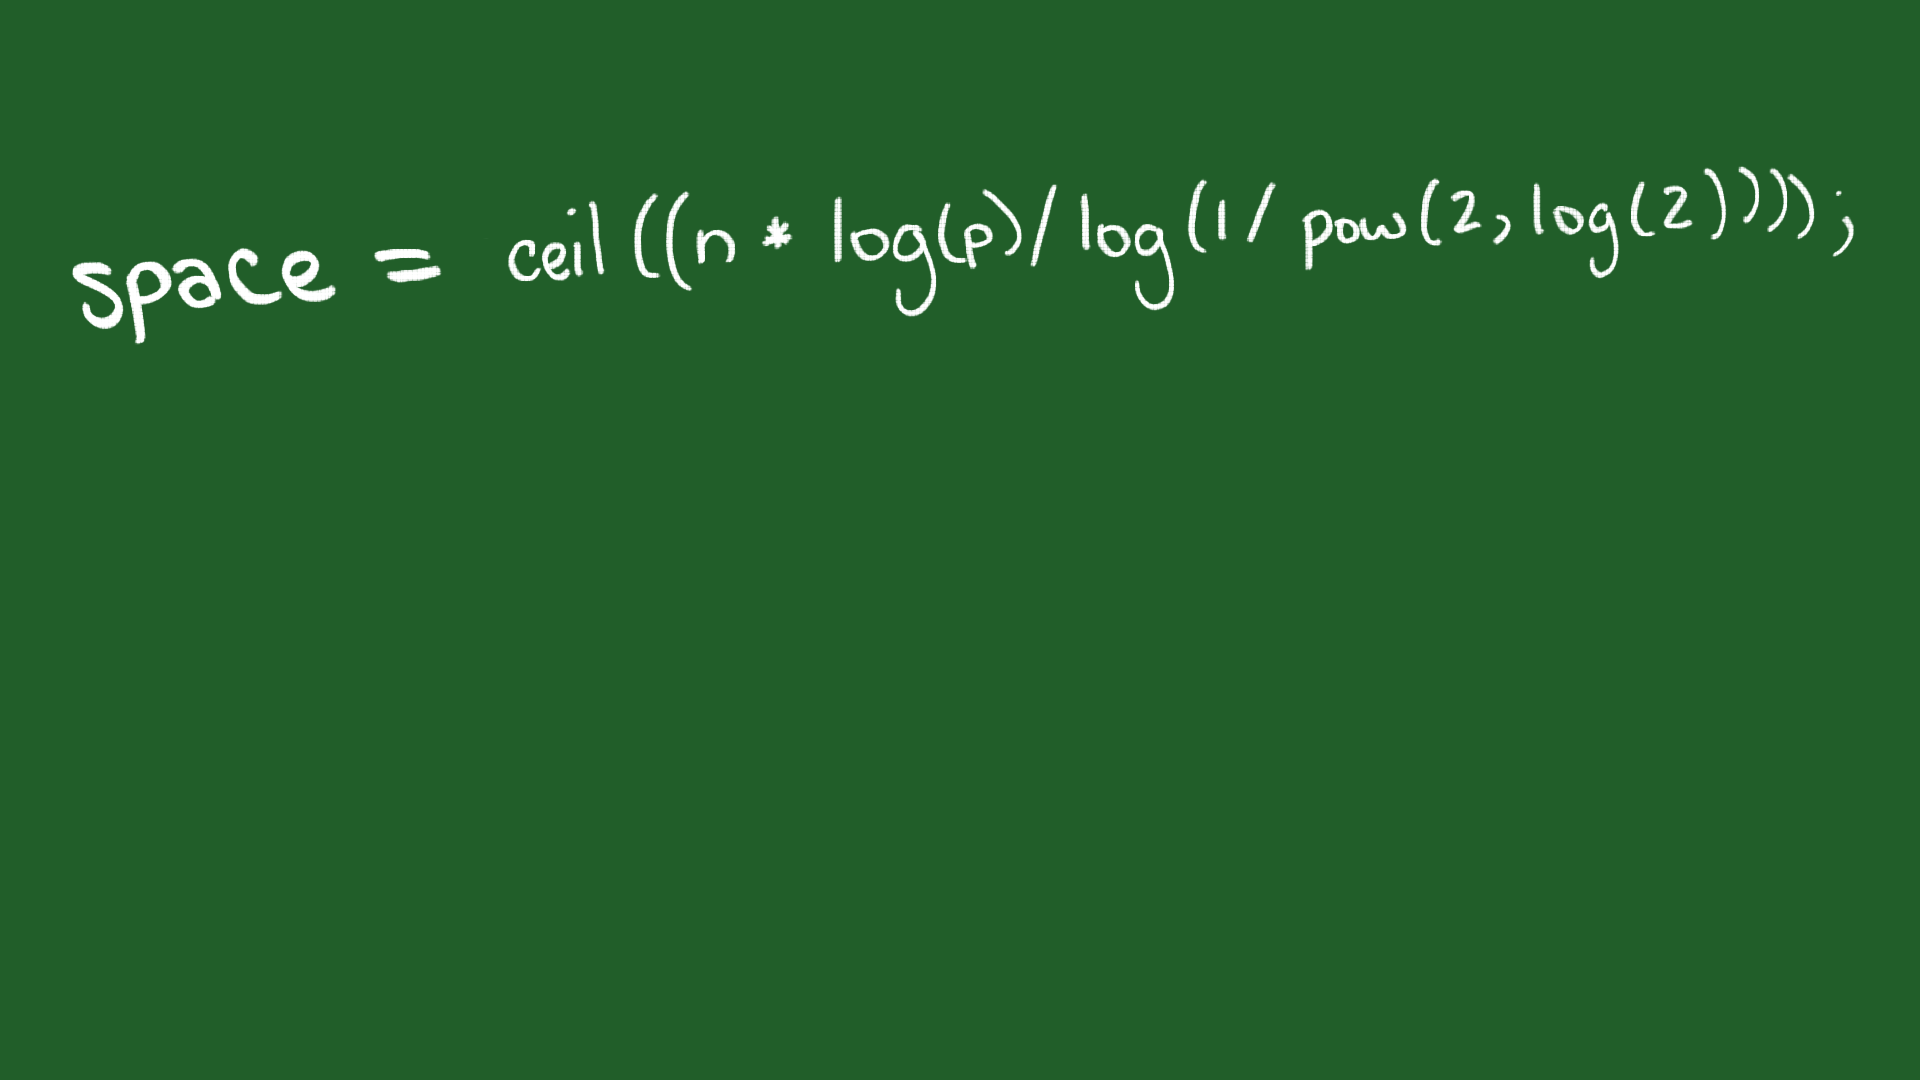 space = ceil((n * log(p)/log(1/pow(2,log(2))));